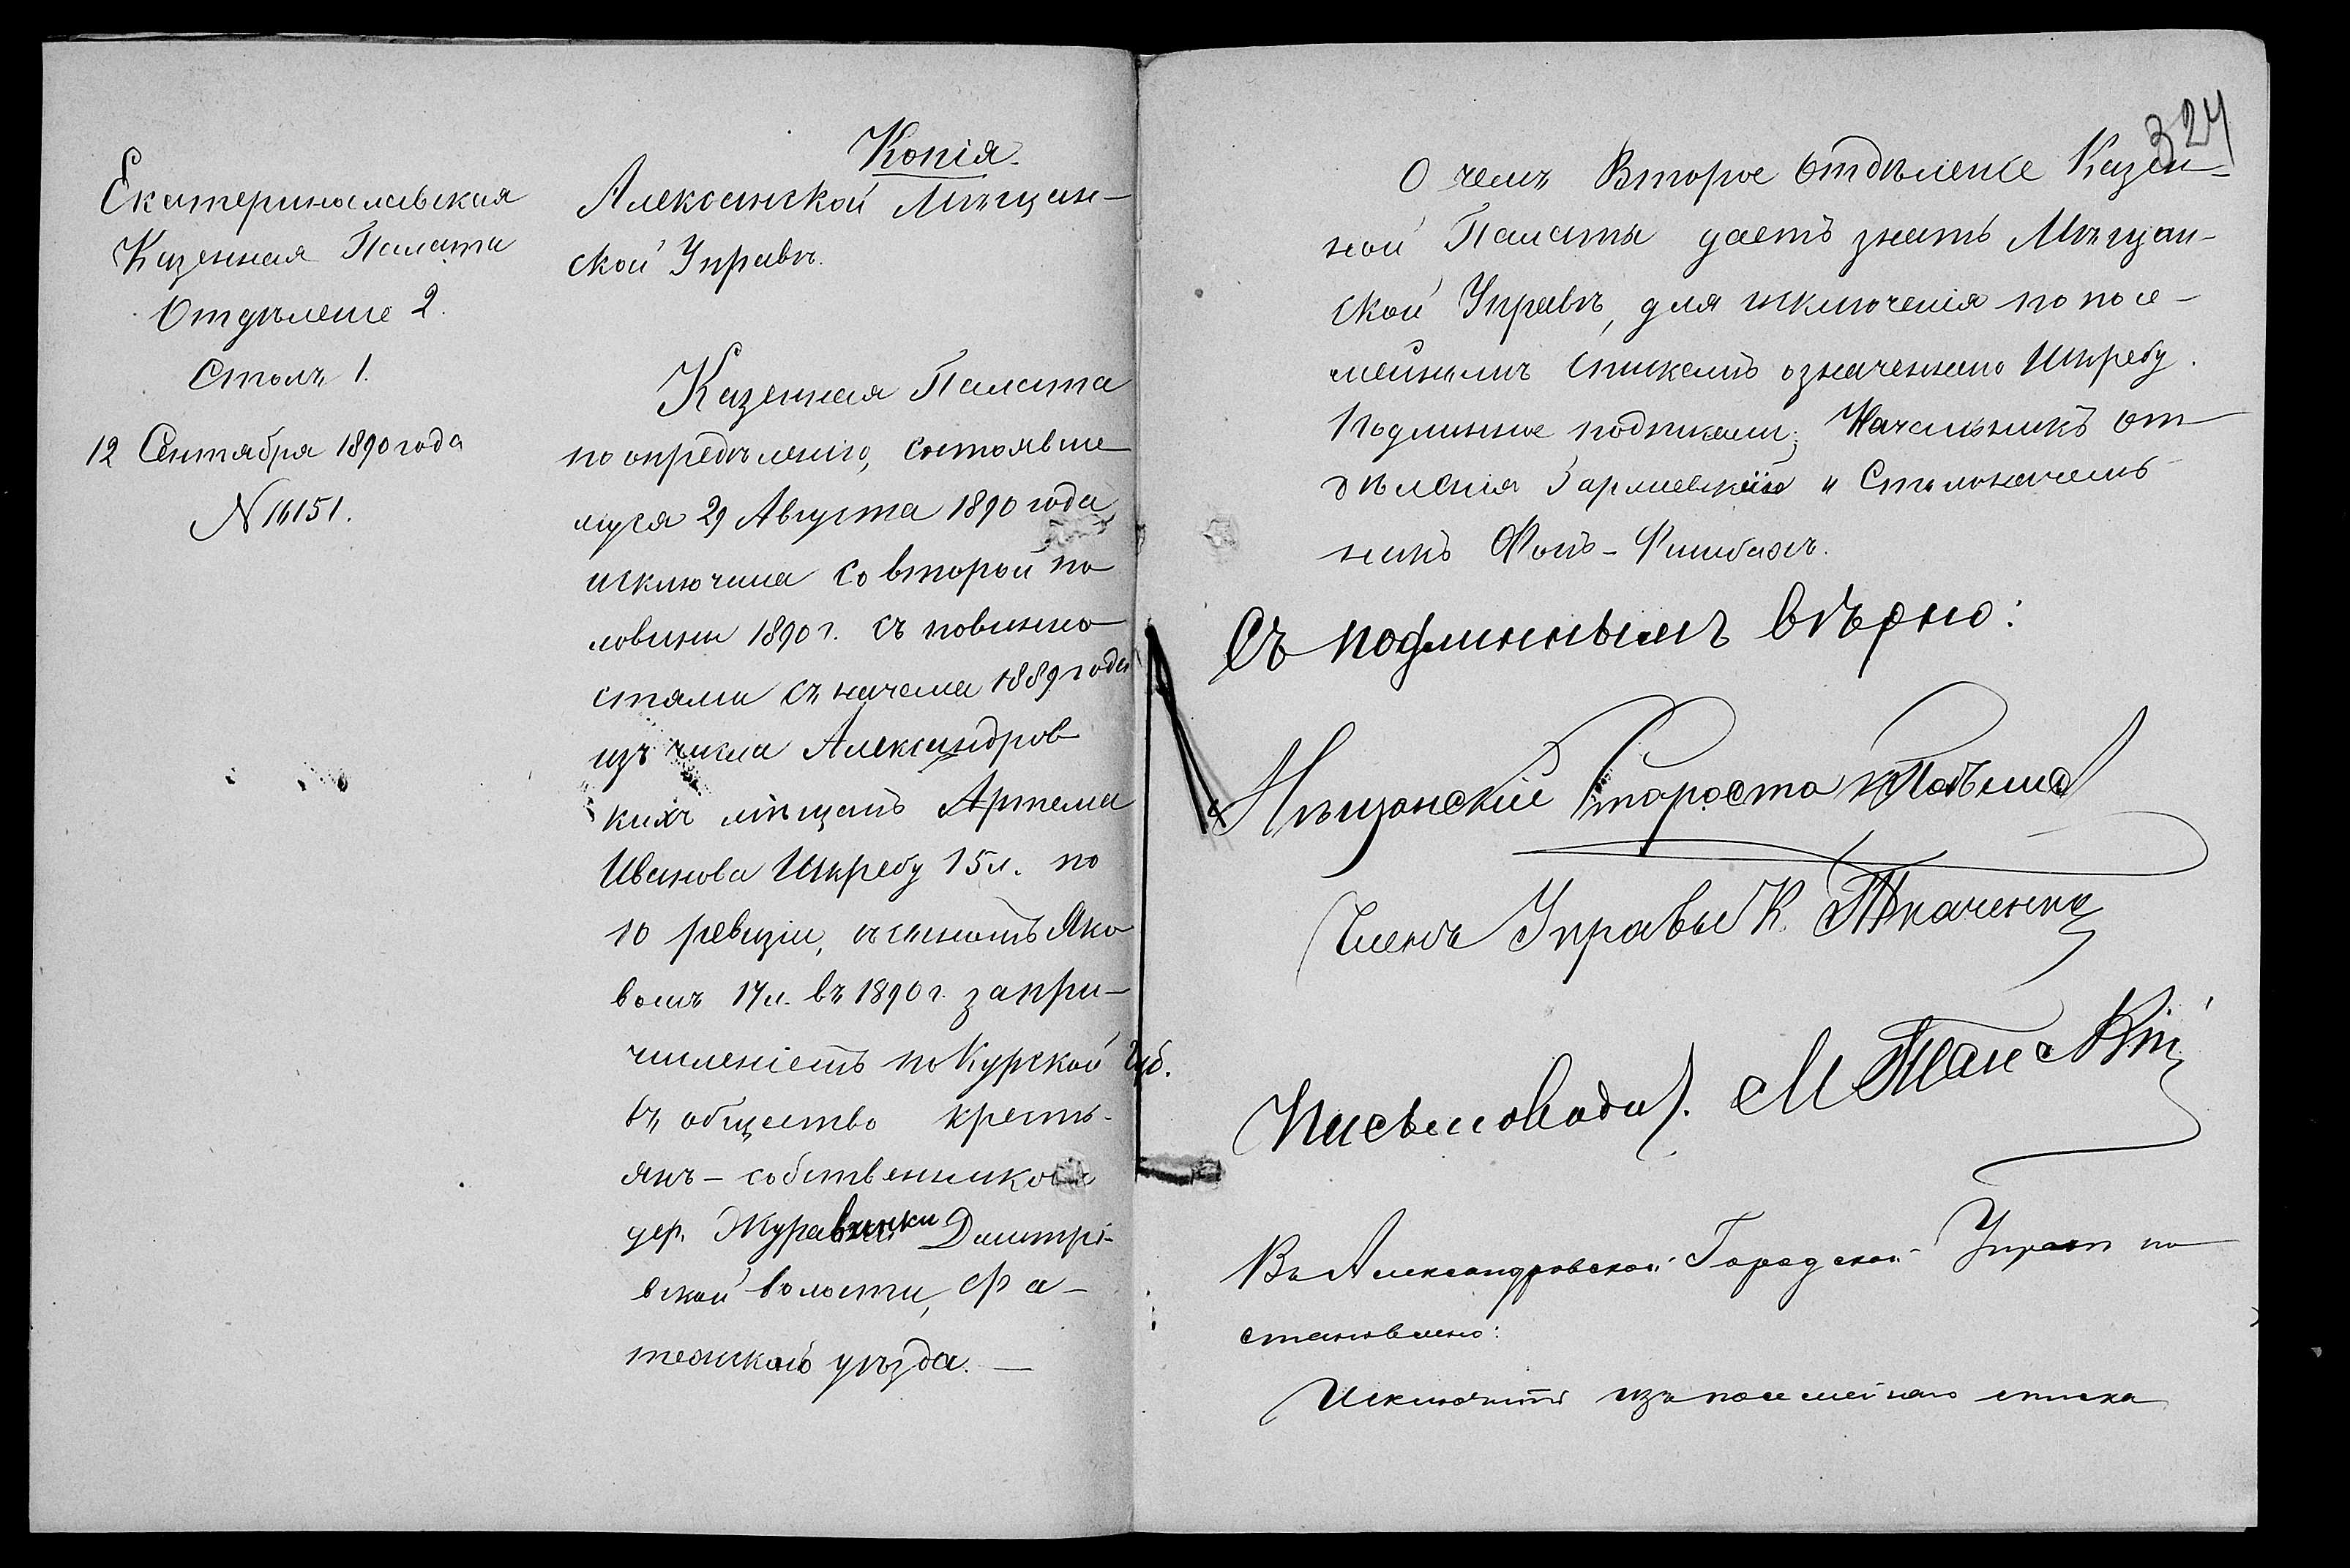 Копія.
Екатеринославская
Казенная Палата
Отдѣленіе 2.
Столъ 1.
12 Сентября 1890 года
N 16151.
Алексанской Мѣщан-
ской Управѣ.
Казенная Палата
по опредѣленію, состоявше
муся 29 Августа 1890 года,
исключила со второй по
ловины 1890 г. съ повинно
стями съ начала 1889 года
изъ числа Александров
кихъ мѣщанъ Артема
Иванова Шкребу 15 л. по
10 ревизіи, съ сыномъ Яко
вомъ 17 л. въ 1890 г. запри-
численіемъ по Курской Губ.
въ общество кресть-
янъ - собственниковъ
дер. Журавинки Димитрі-
вской волости, Фа-
тежскаго уѣзда. —
324
О чемъ Второе Отдѣленіе Казен-
ной Палаты даетъ знать Мѣщан-
ской Управѣ, для исключенія по посе-
мейнымъ спискамъ означеннаго Шкребу.
Подлинное подписали: Начальникъ От
дѣленія и Столоначаль
никъ Фонъ-Фишбахъ.
Съ подлиннымъ вѣрно:
Мѣщанскій Староста
Членъ Управы К. Ткаченко
Письмоводи). М Танскій
Въ Александровской Городской Управѣ по
становлено:
Исключить изъ посемейнаго списка